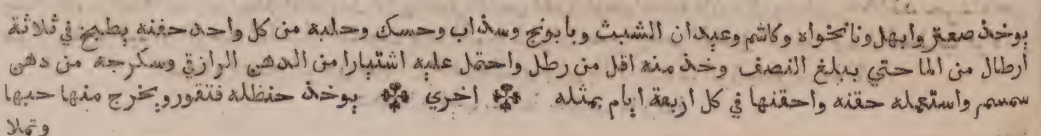 يوخذ صعتر وابهل ونانخواه وكاشم وعيدان الشبث وبابونج وسذاب وحسك وحلبه من كل واحد حفنه يطبخ في ثلاثة
ارطال من الما حتي يبلغ النصف وخذ منه اقل من رطل واحتمل عليه اشتيارا من الدهن الرازقي وسكرجه من دهن
سمسم واستعمله حقنه واحقنها في كل اربعة ايام بمثله اخري يوخذ حنظله فتقور ويخرج منها حبها
وتملا